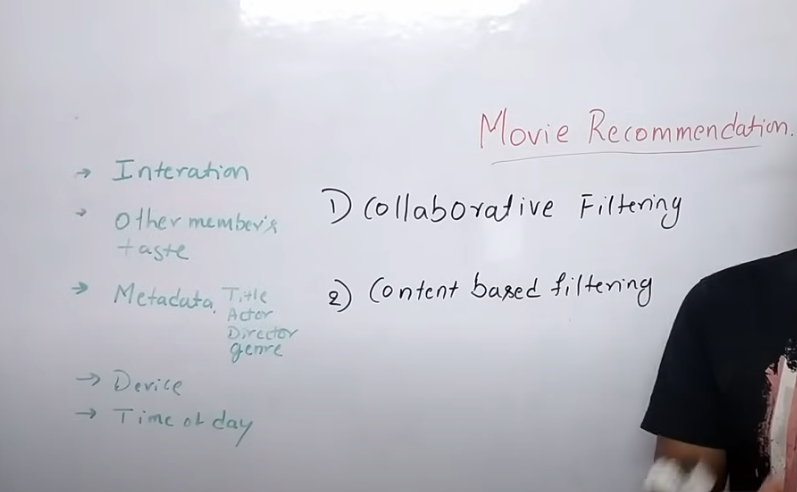 Movie Recommendation.
→ Interation
→ Other member's
taste
→ Metadata. Title
Actor
Director
genre
→ Device
→ Time of day
1) Collaborative Filtering
2) Content based filtering